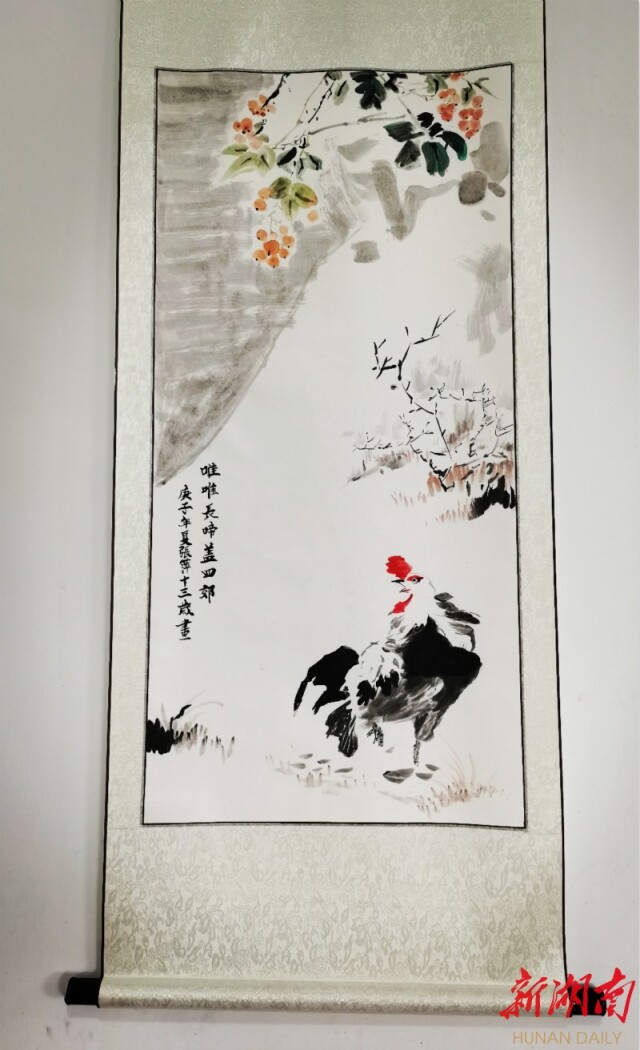 唯唯長啼蓋四郊
庚子年夏張萍十三歲畫
新湖南
HUNAN DAILY